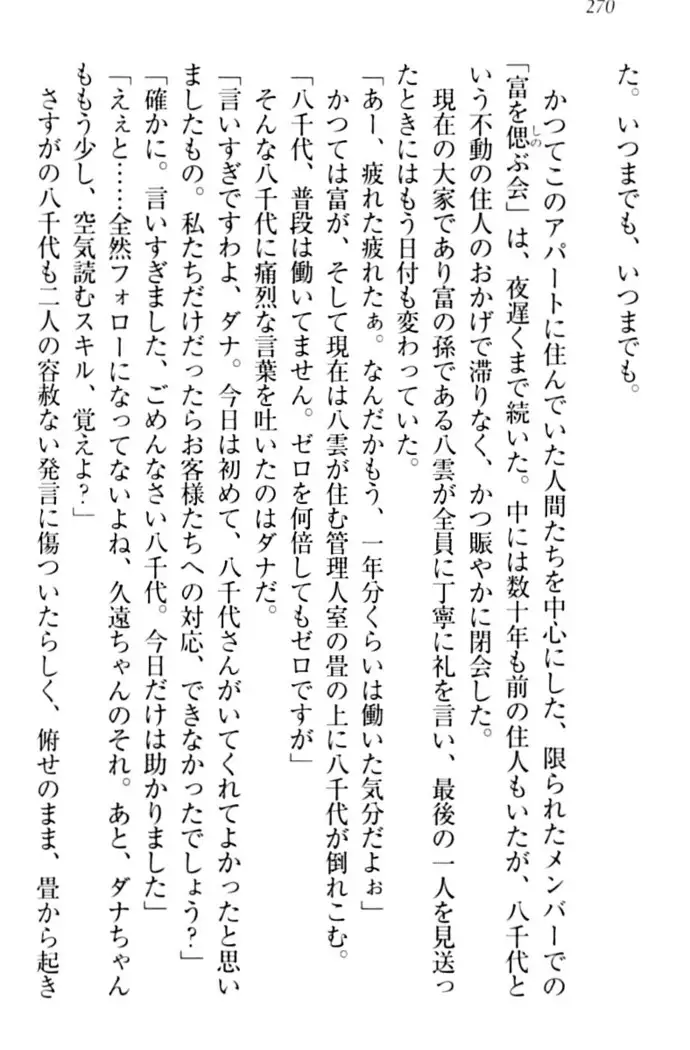 270
た。いつまでも、いつまでも。
かつてこのアパートに住んでいた人間たちを中心にした、限られたメンバーでの
「富を偲ぶ会」は、夜遅くまで続いた。中には数十年も前の住人もいたが、八千代と
いう不動の住人のおかげで滞りなく、かつ賑やかに閉会した。
現在の大家であり富の孫である八雲が全員に丁寧に礼を言い、最後の一人を見送っ
たときにはもう日付も変わっていた。
「あー、疲れた疲れたぁ。なんだかもう、一年分くらいは働いた気分だよぉ」
かつては富が、そして現在は八雲が住む管理人室の畳の上に八千代が倒れこむ。
「八千代、普段は働いてません。ゼロを何倍してもゼロですが」
そんな八千代に痛烈な言葉を吐いたのはダナだ。
「言いすぎですわよ、ダナ。今日は初めて、八千代さんがいてくれてよかったと思い
ましたもの。私たちだけだったらお客様たちへの対応、できなかったでしょう？」
「確かに。言いすぎました、ごめんなさい八千代。今日だけは助かりました」
「えぇと……全然フォローになってないよね、久遠ちゃんのそれ。あと、ダナちゃん
ももう少し、空気読むスキル、覚えよ？」
さすがの八千代も二人の容赦ない発言に傷ついたらしく、俯せのまま、畳から起き